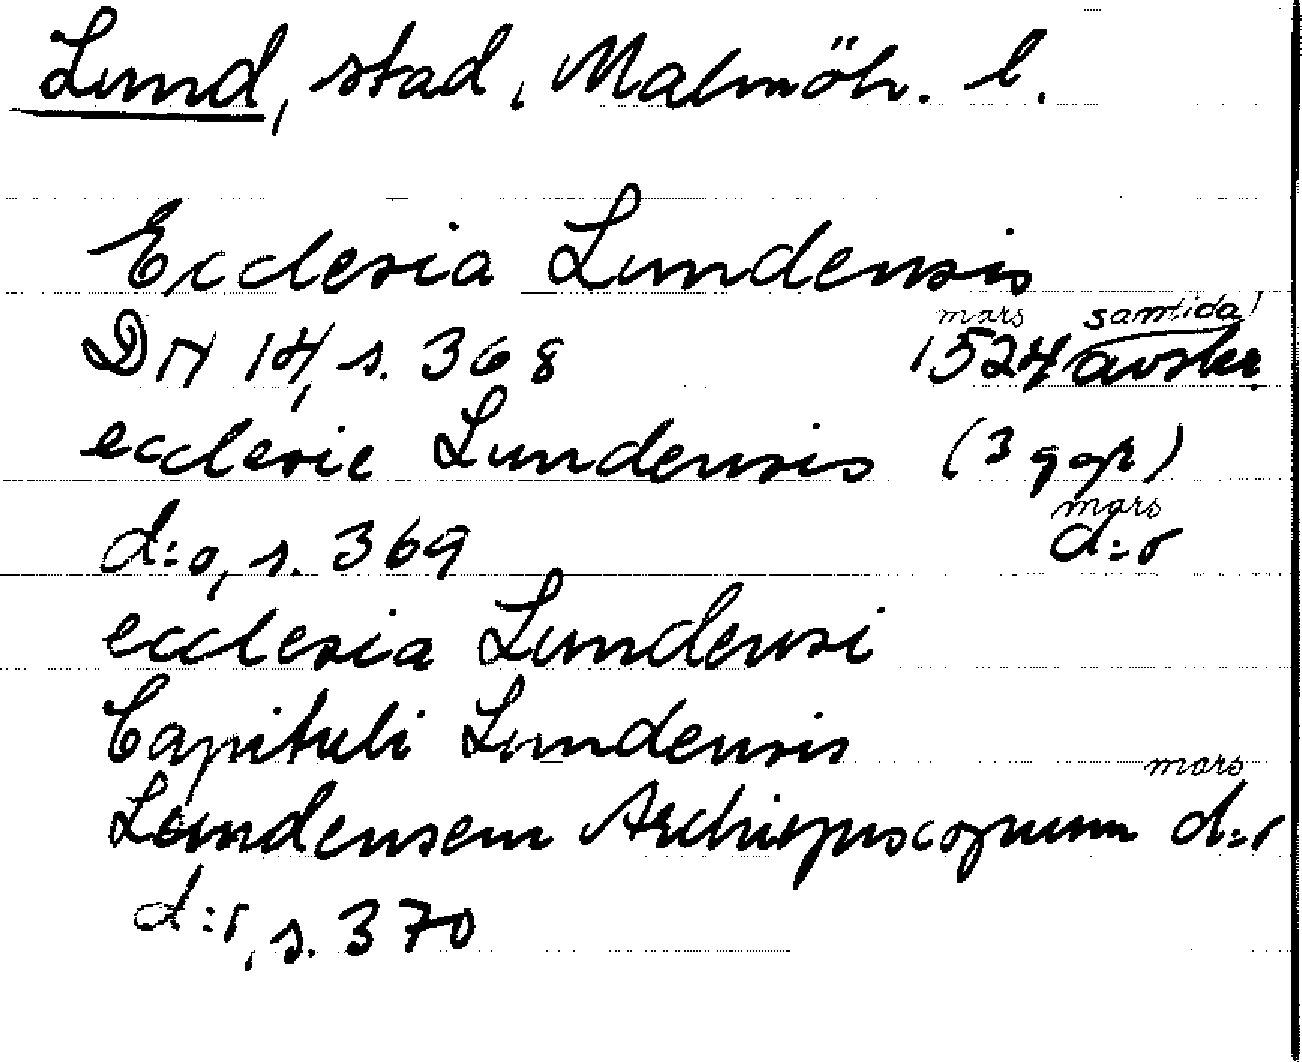 Lund, stad, Malmöh. l.
Ecclesia Lundensis
mars samtida
DN 14, s. 368 1524 avskr.
ecclesie Lundensis (3 ggr)
mars
d:o, s. 369 d:o
ecclesia Lundensi
Capituli Lundensis
mars
Lundensem Archiepiscopum d:o
d:o, s. 370